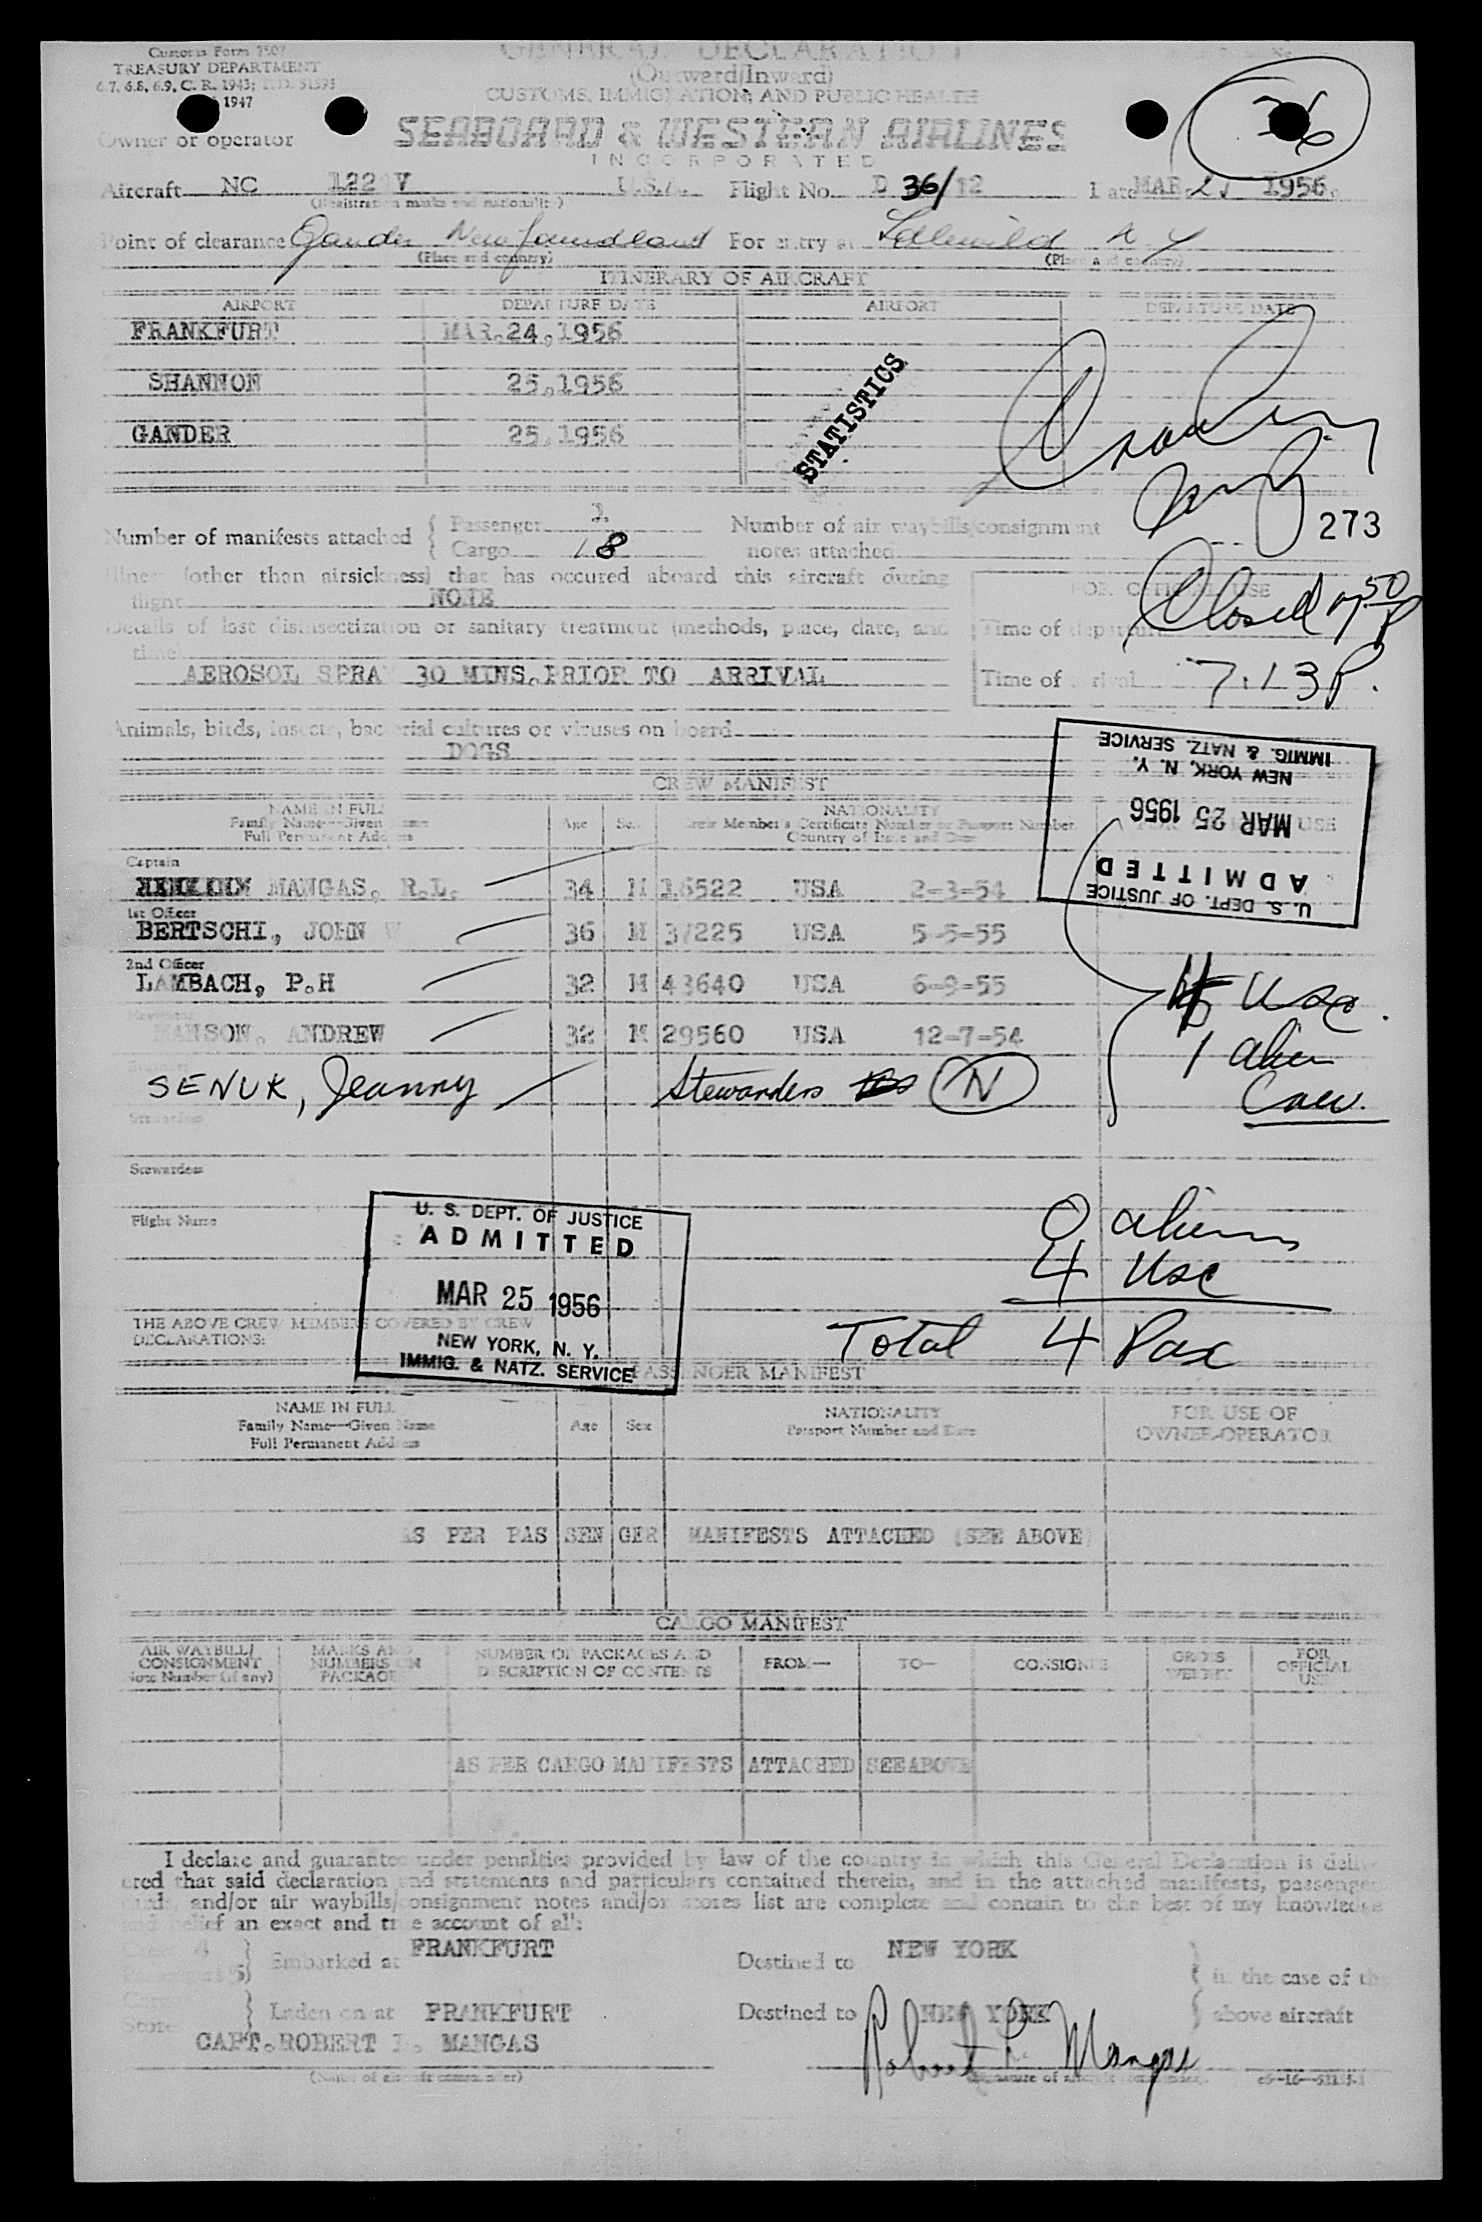 Customs Form 7507
TREASURY DEPARTMENT
6.7, 6.8, 6.9, C. R. 1943; T. D. 51595
1947
GENERAL DECLARATION
(Outward/Inward)
CUSTOMS, IMMIGRATION, AND PUBLIC HEALTH
36
Owner or operator SEABOARD & WESTERN AIRLINES
INCORPORATED
Aircraft NC 122 V U.S.A. Flight No. D 36/12 Date MAR. 1956
(Registration marks and nationality)
Point of clearance Gander Newfoundland For entry at Idlewild N Y
(Place and country) (Place and country)
ITINERARY OF AIRCRAFT
AIRPORT DEPARTURE DATE AIRPORT DEPARTURE DATE
FRANKFURT MAR.24,1956
SHANNON 25,1956
GANDER 25,1956
STATISTICS
273
Number of manifests attached { Passenger 1 Number of air waybills/consignment
Cargo 18 notes attached
Illness (other than airsickness) that has occured aboard this aircraft during
flight NONE
FOR OFFICIAL USE
Closed 7 50 P
Details of last disinsectization or sanitary treatment (methods, place, date, and
time)
Time of departure
AEROSOL SPRAY 30 MINS.PRIOR TO ARRIVAL
Time of arrival 7:13 P.
Animals, birds, insects, bacterial cultures or viruses on board
DOGS
U. S. DEPT. OF JUSTICE
ADMITTED
MAR 25 1956
NEW YORK, N. Y.
IMMIG. & NATZ. SERVICE
CREW MANIFEST
NAME IN FULL
Family Name—Given Name
Full Permanent Address
Age Sex
NATIONALITY
Crew Member's Certificate Number or Passport Number
Country of Issue and Date
USE
Captain
MANGAS, R.L. 34 M 16522 USA 2-3-54
1st Officer
BERTSCHI, JOHN W 36 M 37225 USA 5-5-55
2nd Officer
LAMBACH, P.H 32 M 43640 USA 6-9-55
Navigator
MANSON, ANDREW 32 M 29560 USA 12-7-54
SENUK, Jeanny Stewardess N
USC.
1 alien
Crew.
Stewardess
Stewardess
Flight Nurse
0 aliens
4 USC
Total 4 Pax
U. S. DEPT. OF JUSTICE
ADMITTED
MAR 25 1956
NEW YORK, N. Y.
IMMIG. & NATZ. SERVICE
THE ABOVE CREW MEMBERS COVERED BY CREW
DECLARATIONS:
PASSENGER MANIFEST
NAME IN FULL
Family Name—Given Name
Full Permanent Address
Age Sex
NATIONALITY
Passport Number and Date
FOR USE OF
OWNER-OPERATOR
AS PER PAS SEN GER MANIFESTS ATTACHED (SEE ABOVE)
CARGO MANIFEST
AIR WAYBILL/
CONSIGNMENT
Note Number (if any)
MARKS AND
NUMBERS ON
PACKAGE
NUMBER OF PACKAGES AND
DESCRIPTION OF CONTENTS
FROM— TO— CONSIGNEE
GROSS
WEIGHT
FOR
OFFICIAL
USE
AS PER CARGO MANIFESTS ATTACHED SEE ABOVE
I declare and guarantee under penalties provided by law of the country in which this General Declaration is deliv-
ered that said declaration and statements and particulars contained therein, and in the attached manifests, passenger
and/or air waybills/consignment notes and/or stores list are complete and contain to the best of my knowledge
and belief an exact and true account of all:
Crew 4
Passengers 5 } Embarked at FRANKFURT Destined to NEW YORK } in the case of the
Cargo
Stores } Laden on at FRANKFURT Destined to NEW YORK } above aircraft
CAPT.ROBERT L. MANGAS Robert L. Mangas
(Name of aircraft commander) (Signature of aircraft commander)